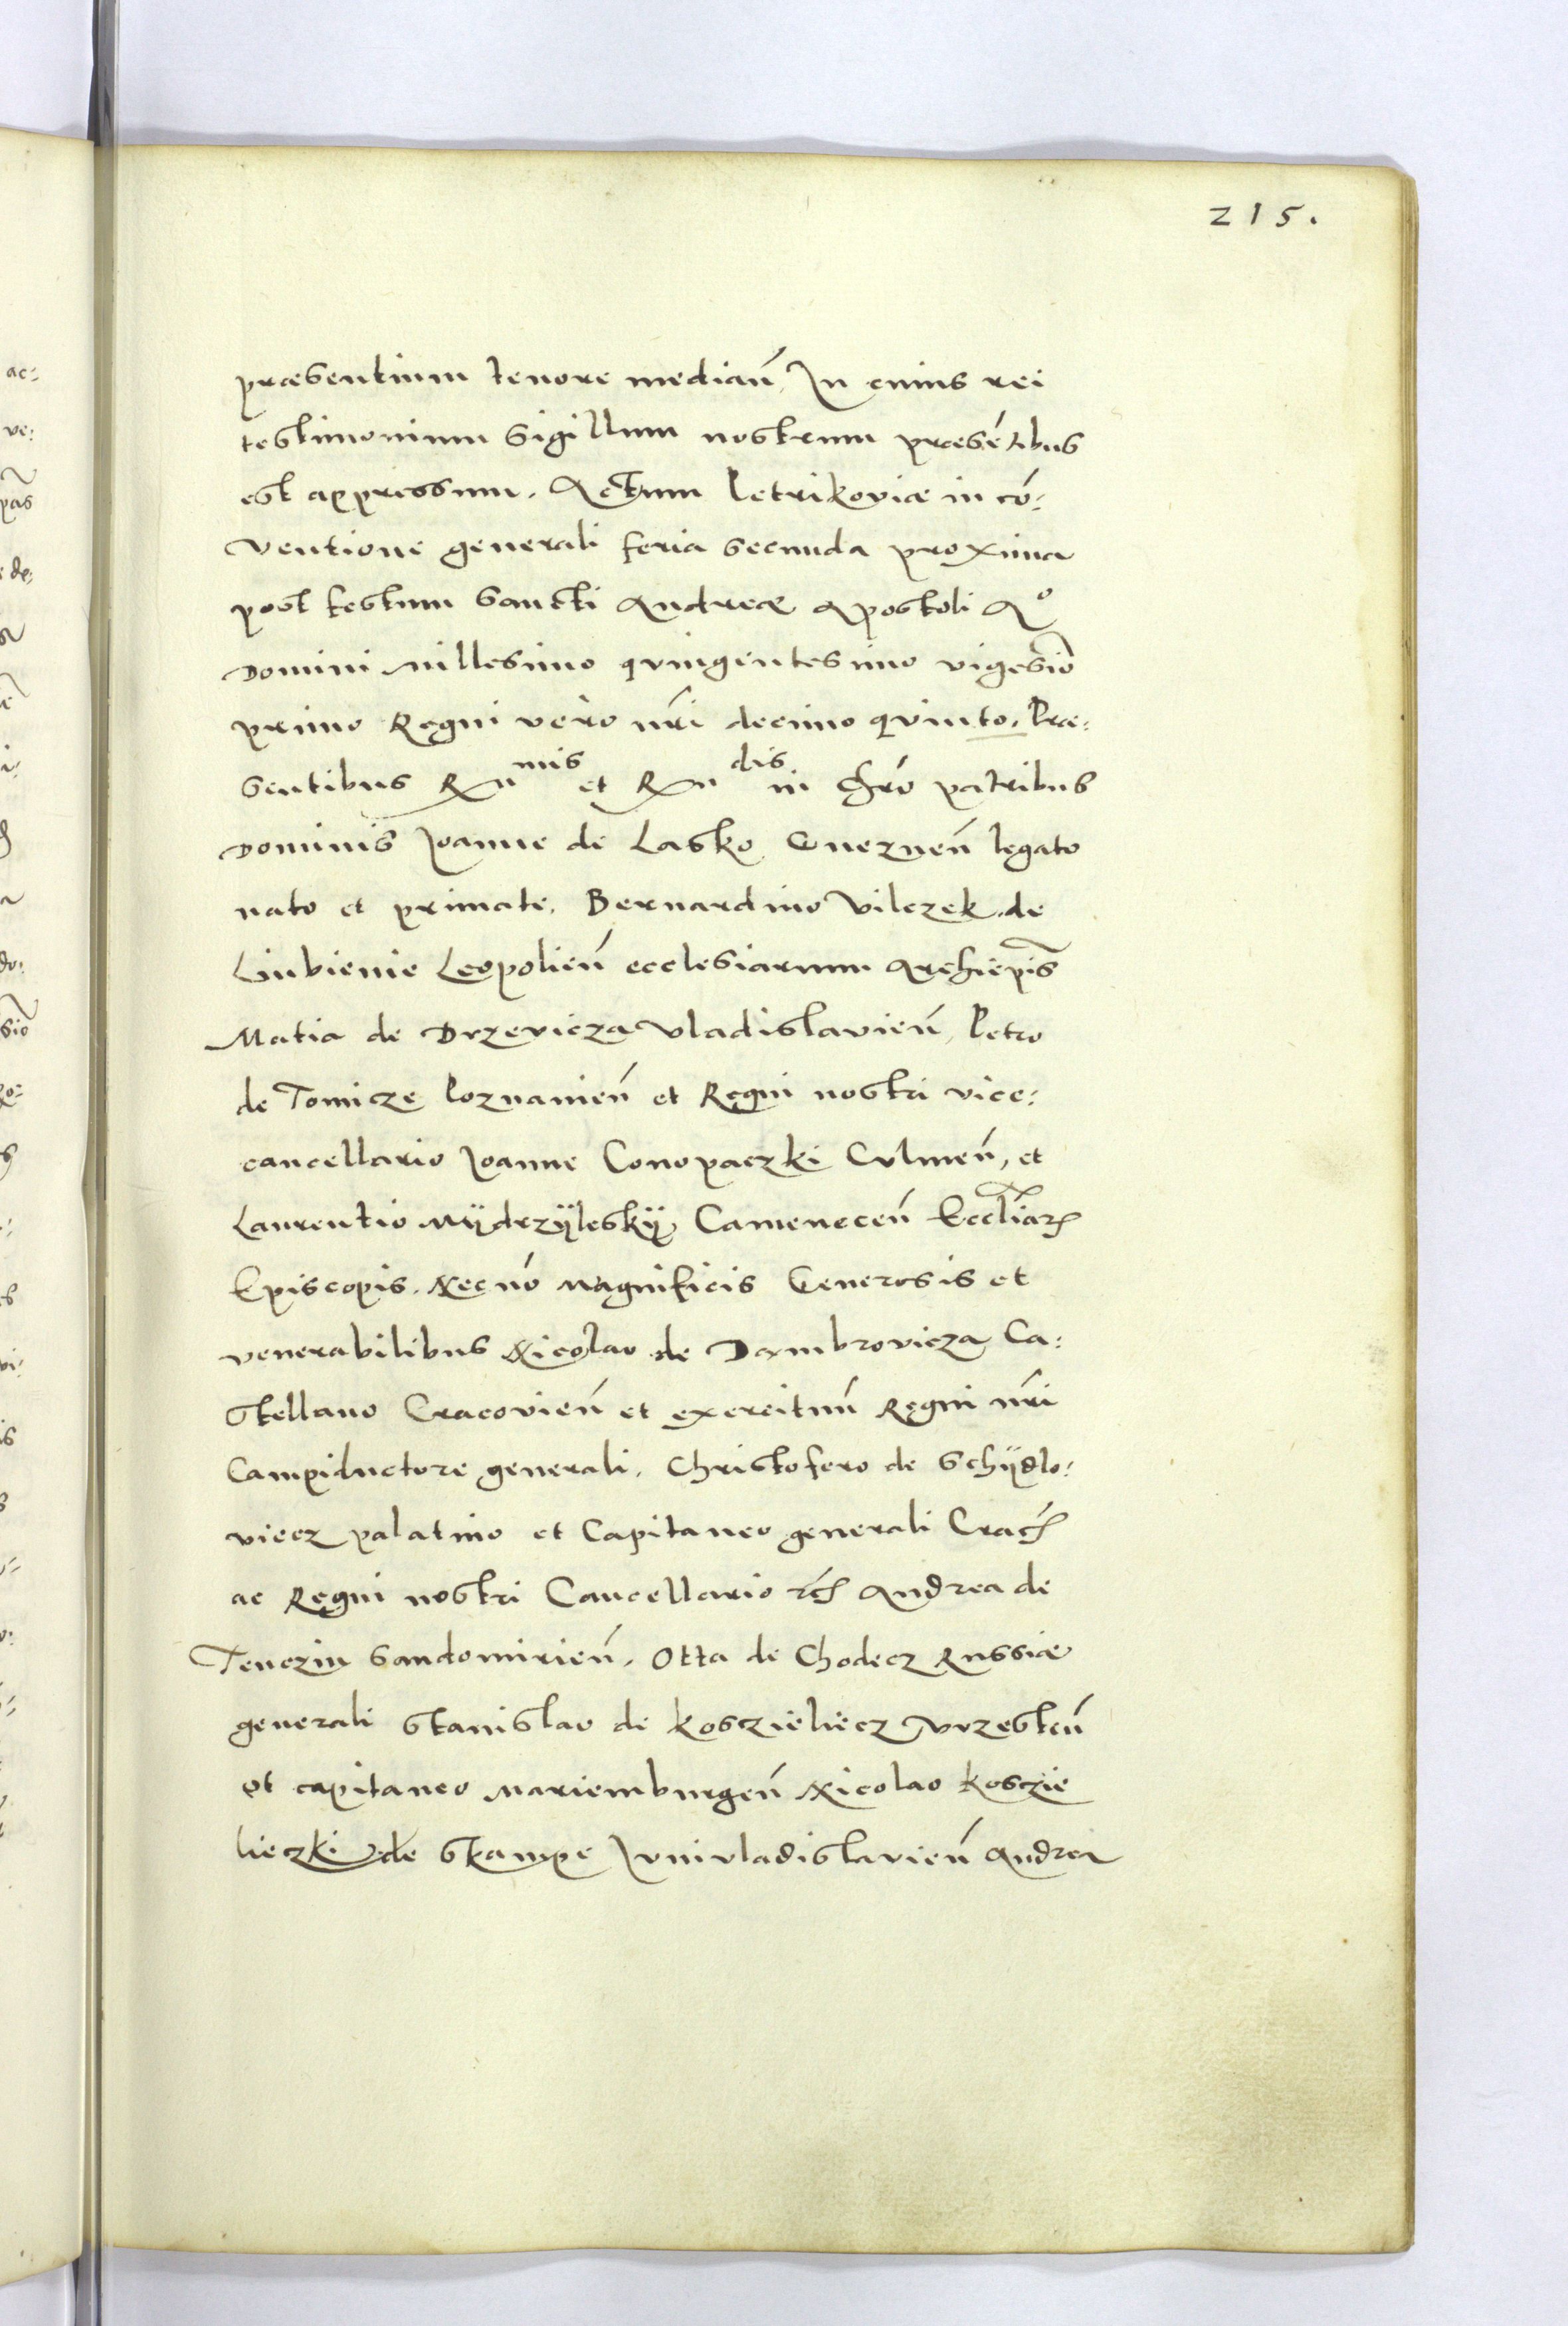 215.
præsentium tenore median̄. In cuius rei
testimonium sigillum nostrum præsētibus
est appressum. Actum Petrikoviæ in cō:
ventione generali feria secunda proxima
post festum Sancti Andreæ Apostoli Aº
Domini millesimo qvingentesimo vigesīo
primo Regni vero nr̄i decimo qvinto. Præ:
sentibus Rnmis et Rndis in Chrō patribus
Dominis Joanne de Lasko Gneznen̄ legato
nato et primate. Bernardino Vilczek de
Liubienie Leopolien̄ ecclesiarum Archiepīs
Matia de Drzevicza Vladislavien̄, Petro
de Tomicze Poznanien̄ et Regni nostri vice:
cancellario Joanne Conopaczki Culmen̄, et
Laurentio Mÿdrzÿleskÿ Camenecen̄ Eccliar
Episcopis. Necnō Magnificis Generosis et
venerabilibus Nicolao de Dambrovicza Ca:
stellano Cracovien̄ et exercituū Regni nr̄i
Campiductore generali. Christofero de Schÿdlo:
viecz palatino et Capitaneo generali Crac̄
ac Regni nostri Cancellario Andrea de
Tenczin Sandomirien̄. Otta de Chodecz Russiæ
generali Stanislao de Koszieliecz Vrzesten̄
et capitaneo Mariemburgen̄ Nicolao Koszie
lieczki de Skampe Junivladislavien̄ Andrea
ac:
ve:
pas
de: